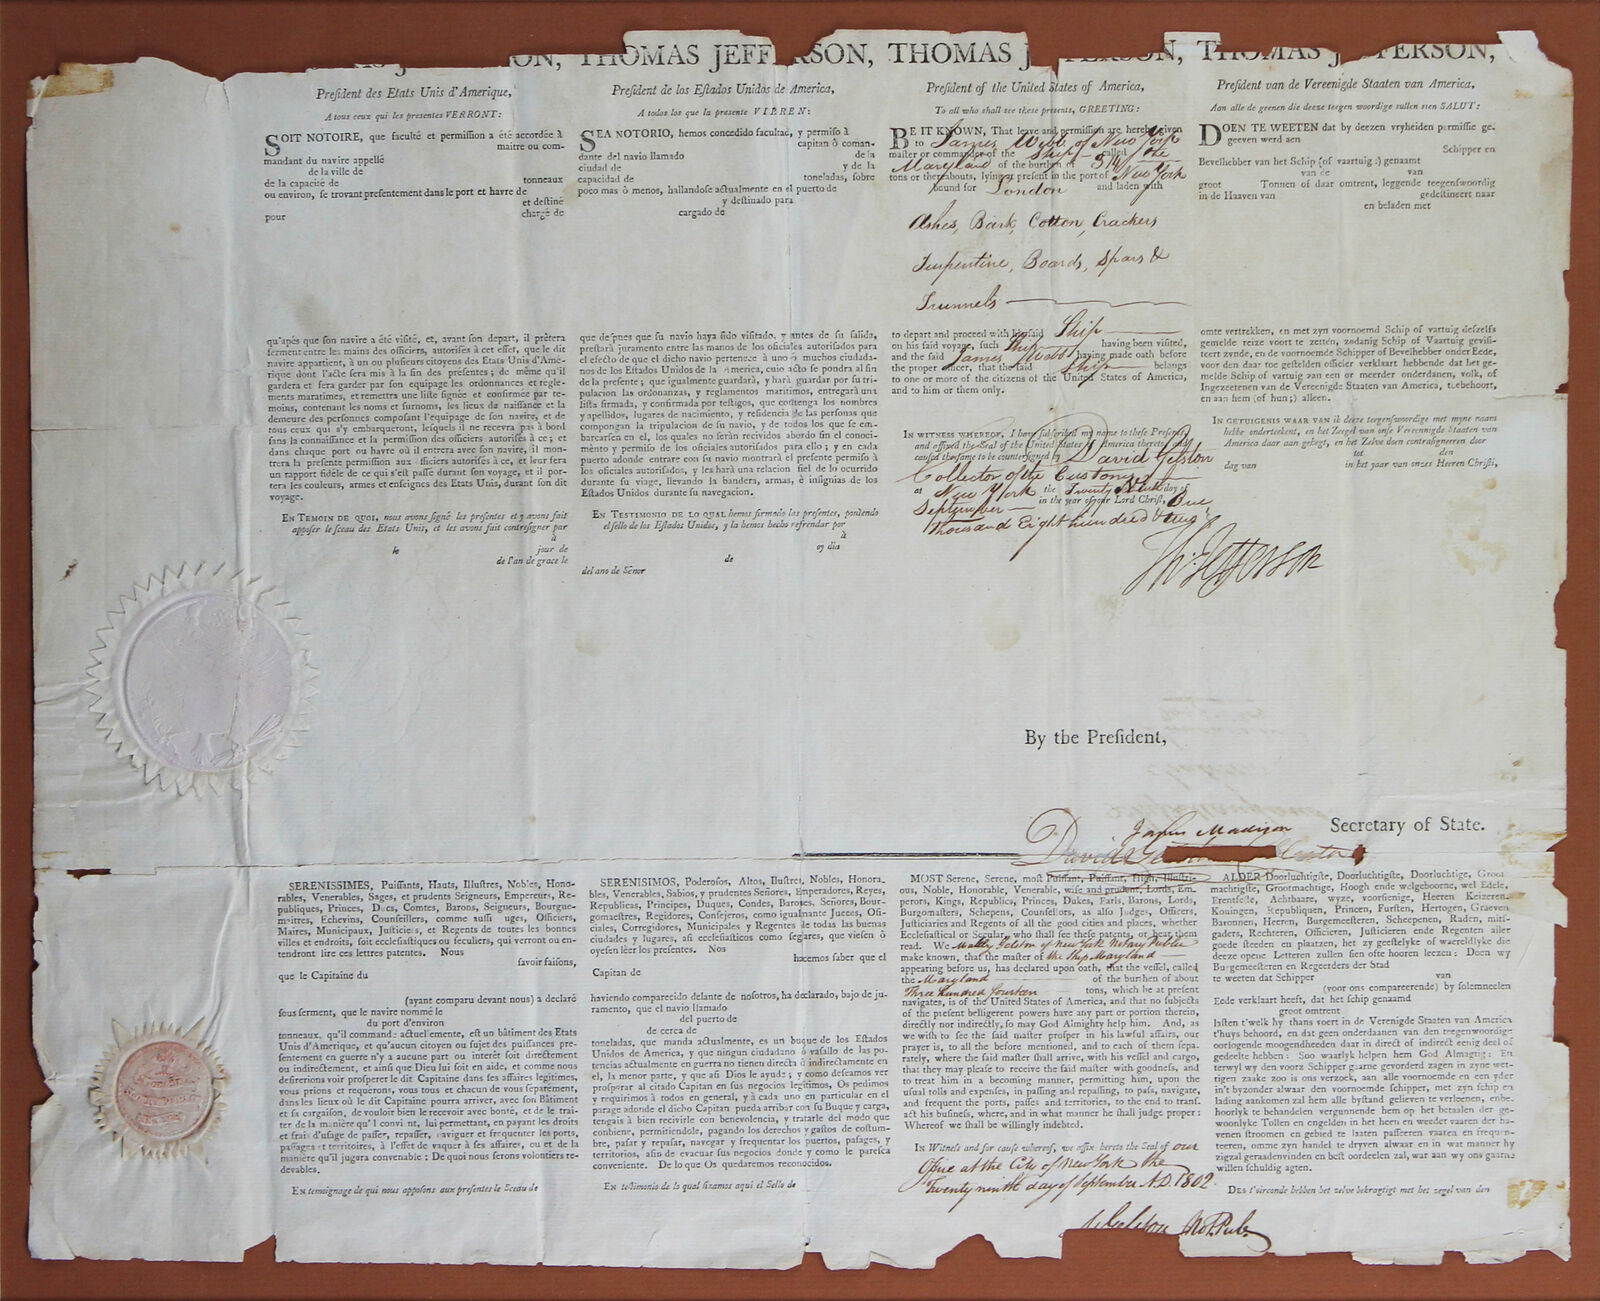 THOMAS JEFFERSON, THOMAS JEFFERSON, THOMAS JEFFERSON,
Preſident des Etats Unis d'Amerique,
A tous ceux qui les preſentes VERRONT:
SOIT NOTOIRE, que faculté et permiſſion a été accordée à
maitre ou com-
mandant du navire appellé
de la ville de
de la capacité de tonneaux
ou environ, ſe trovant preſentement dans le port et havre de
et deſtiné
pour chargé de
qu'apès que ſon navire a été viſité, et, avant ſon depart, il prètera
ferment entre les mains des officiers, autoriſés à cet effet, que le dit
navire appartient, à un ou pluſieurs citoyens des Etats Unis d'Amé-
rique dont l'acte ſera mis à la fin des préſentes; de même qu'il
gardera et fera garder par ſon equipage les ordonnances et regle-
ments maratimes, et remettra une liſte ſignée et confirmée par te-
moins, contenant les noms et ſurnoms, les lieux de naiſſance et la
demeure des perſonnes compoſant l'equipage de ſon navire, et de
tous ceux qui s'y embarqueront, leſquels il ne recevra pas à bord
ſans la connaiſſance et la permiſſion des officiers autoriſés à ce; et
dans chaque port ou havre où il entrera avec ſon navire, il mon-
trera la preſente permiſſion aux officiers autoriſés à ce, et leur fera
un rapport fidéle de ce qui s'eſt paſſé durant ſon voyage, et il por-
tera les couleurs, armes et enſeignes des Etats Unis, durant ſon dit
voyage.
EN TEMOIN DE QUOI, nous avons ſigné les preſentes et y avons fait
appoſer le ſceau des Etats Unis, et les avons fait contreſigner par
à
le jour de
de l'an de grace le
Preſident de los Eſtados Unidos de America,
A todos los que la preſente VIEREN:
SEA NOTORIO, hemos concedido facultad, y permiſo à
capitan ò coman-
dante del navio llamado de la
ciudad de y de la
capacidad de toneladas, ſobre
poco mas ò menos, hallandoſe actualmente en el puerto de
y deſtinado para
cargado de
que deſpues que ſu navio haya ſido viſitado, y antes de ſu ſalida,
preſtarà juramento entre las manos de los oficiales autorizados para
el efecto de que el dicho navio pertenece à uno ò muchos ciudada-
nos de los Eſtados Unidos de la America, cuio acto ſe pondra al fin
de la preſente; que igualmente guardarà, y harà guardar por ſu tri-
pulacion las ordenanzas, y reglamentos maritimos, entregarà una
liſta firmada, y confirmada por teſtigos, que contenga los nombres
y apellidos, lugares de nacimiento, y reſidencia de las perſonas que
compongan la tripulacion de ſu navio, y de todos los que ſe em-
barcarſen en el, los quales no ſeràn recividos abordo ſin el conoci-
miento y permiſo de los oficiales autorizados para ello; y en cada
puerto adonde entrare con ſu navio montrarà el preſente permiſo à
los oficiales autorizados, y les harà una relacion fiel de lo ocurrido
durante ſu viage, llevando la bandera, armas, è inſignias de los
Eſtados Unidos durante ſu navegacion.
EN TESTIMONIO DE LO QUAL hemos firmado las preſentes, poniendo
el ſello de los Eſtados Unidos, y la hemos hecho refrendar por
à
de oy dia
del ano de Sènor
Preſident of the United States of America,
To all who ſhall ſee theſe preſents, GREETING:
BE IT KNOWN, That leave and permiſſion are hereby given
to James Webb of New York
maſter or commander of the Ship called the
Maryland of the burthen of 314
tons or thereabouts, lying at preſent in the port of New York
bound for London and laden with
Ashes, Bark, Cotton, Crackers
Turpentine, Boards, Spars &
Trunnels
to depart and proceed with his ſaid Ship
on his ſaid voyage, ſuch Ship having been viſited,
and the ſaid James Webb having made oath before
the proper officer, that the ſaid Ship belongs
to one or more of the citizens of the United States of America,
and to him or them only.
IN WITNESS WHEREOF, I have ſubſcribed my name to theſe Preſents,
and affixed the Seal of the United States of America thereto, and
cauſed the ſame to be counterſigned by David Gelston
Collector of the Customs
at New York the Twenty Ninth day of
September in the year of our Lord Chriſt, One
thousand Eight hundred & two
Th: Jefferson
Preſident van de Vereenigde Staaten van America,
Aan alle de geenen die deeze teegen woordige zullen zien SALUT:
DOEN TE WEETEN dat by deezen vryheiden permiſſie ge-
geeven werd aen
Schipper en
Bevelhebber van het Schip (of vaartuig:) genaamt
van de van
groot Tonnen of daar omtrent, leggende teegenſwoordig
in de Haaven van gedeſtineert naar
en beladen met
omte vertrekken, en met zyn voornoemd Schip of vartuig deſzelfs
gemelde reize voort te zetten, zodanig Schip of Vaartuig geviſi-
teert zynde, en de voornoemde Schipper of Bevelhebber onder Eede,
voor den daar toe geſtelden officier verklaart hebbende dat het ge-
melde Schip of vartuig aan een or meerder onderdanen, volk, of
Ingezeetenen van de Vereenigde Staaten van America, toebehoort,
en aan hem (of hun;) alleen.
IN GETUIGENIS WAAR VAN ik deeze teegenſwoordige met myne naam
hebbe onderteekent, en het Zeegel van onſe Vereennigde Staaten van
America daar aan gehegt, en het Zelve doen contraſigneren door
tot den
dag van in het jaar van onzes Heeren Chriſti,
By the Preſident,
James Madison Secretary of State.
David Gelston
SERENISSIMES, Puiſſants, Hauts, Illuſtres, Nobles, Hono-
rables, Venerables, Sages, et prudents Seigneurs, Empereurs, Re-
publiques, Princes, Ducs, Comtes, Barons, Seigneurs, Bourge-
maitres, Echevins, Counſeillers, comme auſſi Juges, Officiers,
Maires, Municipaux, Juſticiers, et Regents de toutes les bonnes
villes et endroits, ſoit eccleſiaſtiques ou ſeculiers, qui verront ou en-
tendront lire ces lettres patentes. Nous
ſavoir faiſons,
que le Capitaine du
(ayant comparu devant nous) a declaré
ſous ſerment, que le navire nommé le
du port d'environ
tonneaux, qu'il commande actuellemente, eſt un bâtiment des Etats
Unis d'Amerique, et qu'aucun citoyen ou ſujet des puiſſances pre-
ſentement en guerre n'y a aucune part ou interêt ſoit directement
ou indirectement, et ainſi que Dieu lui ſoit en aide, et comme nous
deſirerions voir proſperer le dit Capitaine dans ſes affaires legitimes,
vous prions et requérons, vous tous et chacun de vous ſeparement,
dans les lieux où le dit Capitaine pourra arriver, avec ſon Bâtiment
et ſa cargaiſon, de vouloir bien le recevoir avec bonté, et de le trai-
ter de la manière qu'l convint, lui permettant, en payant les droits
et frais d'uſage de paſſer, repaſſer, naviguer et frequenter les ports,
paſſages et territoires, à l'effet de vaquer à ſes affaires, où et de la
manière qu'il jugara convenable: De quoi nous ferons volontiers re-
devables.
En temoignage de qui nous appoſons aux preſentes le Sceau de
SERENISIMOS, Poderoſos, Altos, Iluſtres, Nobles, Honora-
bles, Venerables, Sabios, y prudentes Señores, Emperadores, Reyes,
Republicas, Principes, Duques, Condes, Barones, Señores, Bour-
gomaeſtres, Regidores, Conſejeros, como igualmante Jueces, Ofi-
ciales, Corregidores, Municipales y Regentes de todas las buenas
ciudades y lugares, aſi eccleſiaſticos como ſeglares, que vieſen ò
oyeſen lèer los preſentes. Nos
hacemos ſaber que el
Capitan de
haviendo comparecido delante de noſotros, ha declarado, bajo de ju-
ramento, que el navio llamado
del puerto de
de cerca de
toneladas, que manda actualmente, es un buque de los Eſtados
Unidos de America, y que ningun ciudadano ò vaſallo de las po-
tencias actualmente en guerra no tienen directa ò indirectamente en
el, la menor parte, y que aſi Dios le ayude; y como deſeamos ver
proſperar al citado Capitan en ſus negocios legitimos, Os pedimos
y requirimos à todos en general, y à cada uno en particular en el
parage adonde el dicho Capitan pueda arribar con ſu Buque y carga,
tengais à bien recivirle con benevolencia, y tratarle del modo que
conbiene, permitiendole, pagando los derechos y gaſtos de coſtum-
bre, paſar y repaſar, navegar y frequentar los puertos, paſages, y
territorios, afin de evacuar ſus negocios donde y como le pareſca
conveniente. De lo que Os quedaremos reconocidos.
En teſtimonio de lo qual fixamos aqui el Sello de
MOST Serene, Serene, moſt Puiſſant, Puiſſant, High, Illuſtri-
ous, Noble, Honorable, Venerable, wiſe and prudent, Lords, Em-
perors, Kings, Republics, Princes, Dukes, Earls, Barons, Lords,
Burgomaſters, Schepens, Counſellors, as alſo Judges, Officers,
Juſticiaries and Regents of all the good cities and places, whether
Eccleſiaſtical or Secular, who ſhall ſee theſe patents, or hear them
read. We Maltby Gelston of New York Notary Public
make known, that the maſter of the Ship Maryland
appearing before us, has declared upon oath, that the veſſel, called
the Maryland of the burthen of about
Three hundred fourteen tons, which he at preſent
navigates, is of the United States of America, and that no ſubjects
of the preſent belligerent powers have any part or portion therein,
directly nor indirectly, ſo may God Almighty help him. And, as
we wiſh to ſee the ſaid maſter proſper in his lawful affairs, our
prayer is, to all the before mentioned, and to each of them ſepa-
rately, where the ſaid maſter ſhall arrive, with his veſſel and cargo,
that they may pleaſe to receive the ſaid maſter with goodneſs, and
to treat him in a becoming manner, permitting him, upon the
uſual tolls and expenſes, in paſſing and repaſſing, to paſs, navigate,
and frequent the ports, paſſes and territories, to the end to tranſ-
act his buſineſs, where, and in what manner he ſhall judge proper:
Whereof we ſhall be willingly indebted.
In Witneſs and for cauſe whereof, we affix hereto the Seal of our
Office at the City of New York the
Twenty ninth day of September A.D. 1802
Gelston Not. Pub.
ALDER Doorluchtigſte, Doorluchtige, Groot
machtigſte, Grootmachtige, Hoogh ende welgeboorne, wel Edele,
Erentfeſte, Achtbaare, wyze, voorſienige, Heeren Keizeren,
Kouingen, Republiquen, Princen, Furſten, Hertogen, Graeven
Baronnen, Heeren, Burgemeeſteren, Scheepenen, Raden, mitſ-
gaders, Rechteren, Officieren, Juſticieren ende Regenten aller
goede ſteeden en plaatzen, het zy geeſtelyke of waereldlyke die
deeze opene Letteren zullen ſien ofte hooren leezen: Doen wy
Burgemeeſteren en Regeerders der Stad
van
te weeten dat Schipper
(voor ons compareerende) by ſolemneelen
Eede verklaart heeft, dat het ſchip genaamd
groot omtrent
laſten t'welk hy thans voert in de Verenigde Staaten van America
t'huys behoord, en dat geen onderdaanen van den teegenwoordige
oorlogende moogendheeden daar in direct of indirect eenig deel of
gedeelte hebben: Soo waarlyk helpen hem God Almagtig: En
terwyl wy den voorz Schipper gaarne gevorderd zagen in zyne wet-
tigen zaake zoo is ons verzoek, aan alle voornoemde en een yder
in't byzonder alwaar den voornoemde ſchipper, met zyn ſchip en
lading aankomen zal hem alle byſtand gelieven te verleenen, enbe-
hoorlyk te behandelen vergunnende hem op het betaalen der ge-
woonlyke Tollen en ongelden in het heen en weeder vaaren der ha-
venen ſtroomen en gebied te laaten paſſeeren vaaten en frequen-
teeren, omme zyn handel te dryven alwaar en in wat manner hy
zigzal geraadenvinden en beſt oordeelen zal, war aan wy ons gaarne
willen ſchuldig agten.
DES t'oirconde hebben het zelve bekragtigt met het zegel van den